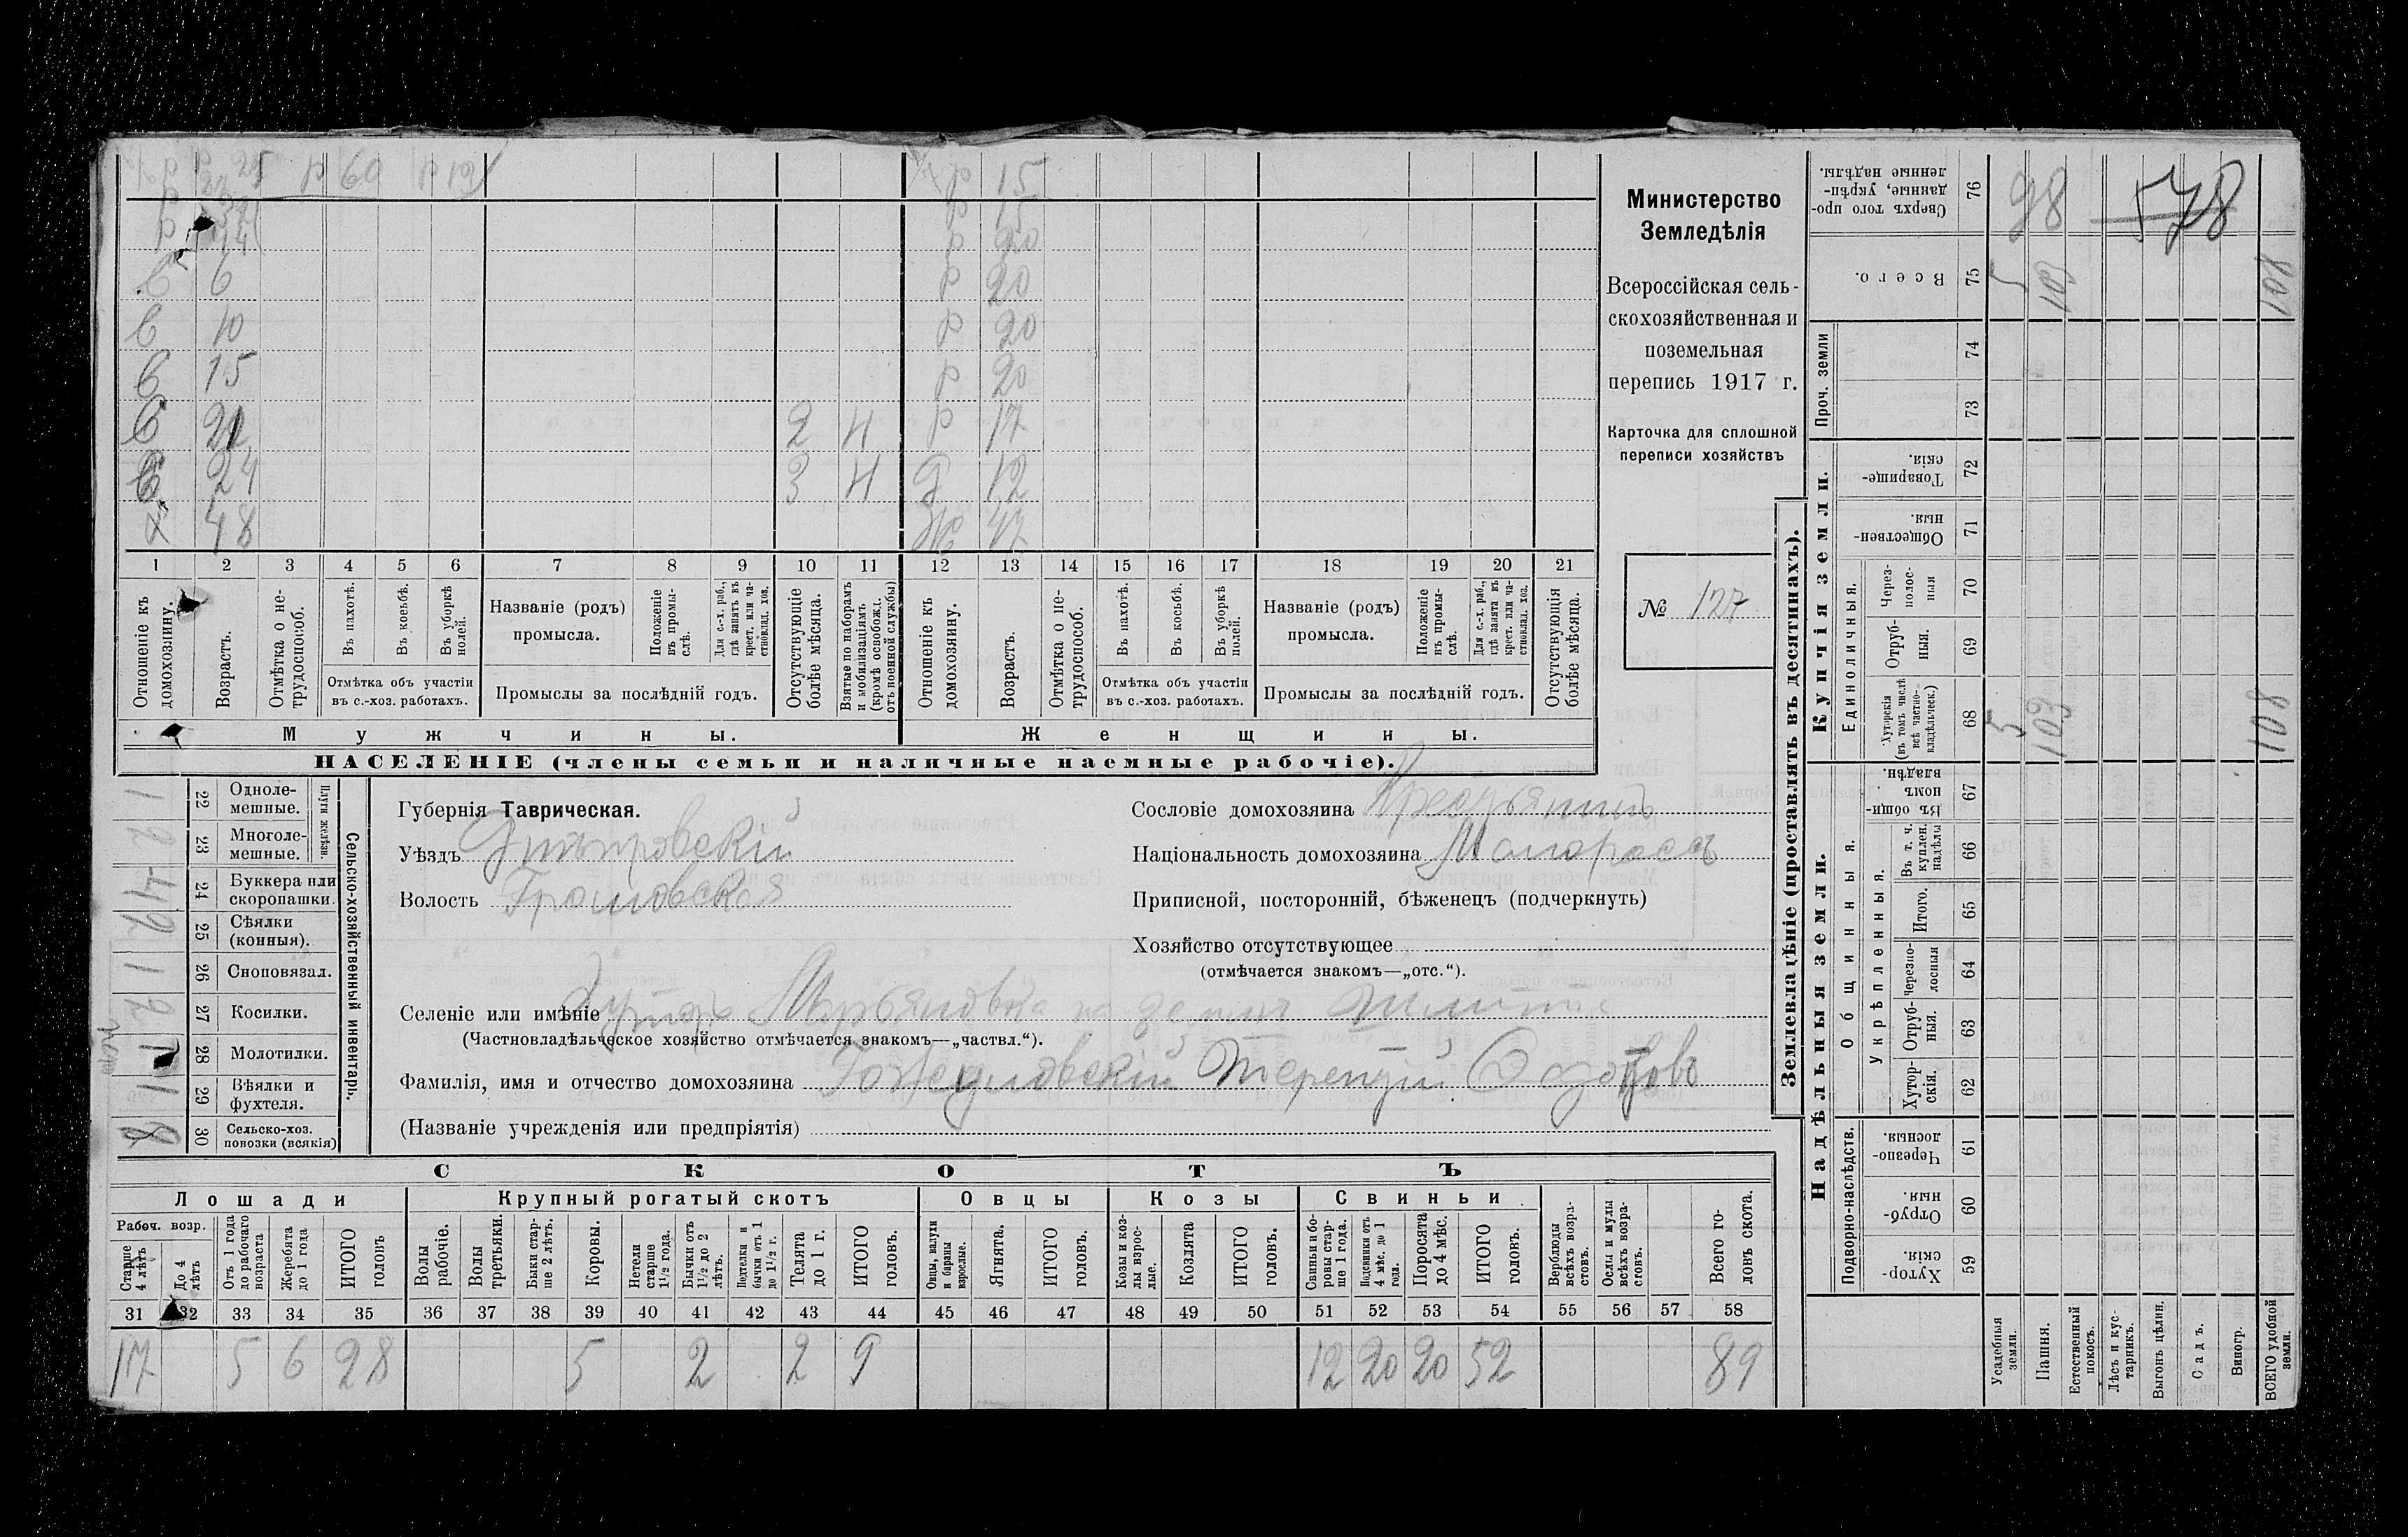 25 р 60 р 19 р 15
р 15
44 р 20
С 6 р 20
С 10 р 20
С 15 р 20
С 21 2 Н р 17
С 24 3 Н Д 12
Х 48 Ж 47
1 2 3 4 5 6 7 8 9 10 11 12 13 14 15 16 17 18 19 20 21
Отношеніе къ домохозяину.
Возрастъ.
Отмѣтка о не-трудоспособ.
Въ пахотѣ.
Въ косьбѣ.
Въ уборкѣ полей.
Отмѣтка объ участіи
въ с.-хоз. работахъ.
Названіе (родъ)
промысла.
Положеніе въ промы-слѣ.
Для с.-х. раб., гдѣ занятъ въ крест. или ча-стновлад. хоз.
Промыслы за послѣдній годъ.
Отсутствующіе болѣе мѣсяца.
Взятые по наборамъ и мобилизаціямъ (кромѣ освобожд. отъ военной службы)
Отношеніе къ домохозяину.
Возрастъ.
Отмѣтка о не-трудоспособ.
Въ пахотѣ.
Въ косьбѣ.
Въ уборкѣ полей.
Отмѣтка объ участіи
въ с.-хоз. работахъ.
Названіе (родъ)
промысла.
Положеніе въ промы-слѣ.
Для с.-х. раб., гдѣ занята въ крест. или ча-стновлад. хоз.
Промыслы за послѣдній годъ.
Отсутствующія болѣе мѣсяца.
Мужчины. Женщины.
НАСЕЛЕНІЕ (члены семьи и наличные наемные рабочіе).
Министерство
Земледѣлія
Всероссійская сель-
скохозяйственная и
поземельная
перепись 1917 г.
Карточка для сплошной
переписи хозяйствъ
№ 127
Сельско-хозяйственный инвентарь.
Плуги желѣзн.
1 22 Одноле-мешные.
2 23 Многоле-мешные.
4 24 Буккера или скоропашки.
2 25 Сѣялки (конныя).
1 26 Сноповязал.
2 27 Косилки.
1 28 Молотилки.
1 29 Вѣялки и фухтеля.
8 30 Сельско-хоз. повозки (всякія)
Губернія Таврическая.
Уѣздъ Днѣпровскій
Волость Громовская
Сословіе домохозяина Крестьянинъ
Національность домохозяина Малороссъ
Приписной, посторонній, бѣженецъ (подчеркнуть)
Хозяйство отсутствующее
(отмѣчается знакомъ—„отс.“).
Селеніе или имѣніе Хуторъ на земл
(Частновладѣльческое хозяйство отмѣчается знакомъ—„частвл.“).
Фамилія, имя и отчество домохозяина Терентій
(Названіе учрежденія или предпріятія)
СКОТЪ
Лошади Крупный рогатый скотъ Овцы Козы Свиньи
Рабоч. возр.
Старше 4 лѣтъ
До 4 лѣтъ
Отъ 1 года до рабочаго возраста
Жеребята до 1 года
ИТОГО головъ
Волы рабочіе.
Волы третьяки.
Быки стар-ше 2 лѣтъ.
Коровы.
Нетели старше 1½ года.
Бычки отъ 1½ до 2 лѣтъ.
Подтелки и бычки отъ 1 до 1½ г.
Телята до 1 г.
ИТОГО головъ.
Овцы, валухи и бараны взрослые.
Ягнята.
ИТОГО головъ.
Козы и коз-лы взрос-лые.
Козлята
ИТОГО головъ.
Свиньи и бо-ровы стар-ше 1 года.
Подсвинки отъ 4 мѣс. до 1 года.
Поросята до 4 мѣс.
ИТОГО головъ.
Верблюды всѣхъ возра-стовъ.
Ослы и мулы всѣхъ возра-стовъ.
Всего го-ловъ скота.
31 32 33 34 35 36 37 38 39 40 41 42 43 44 45 46 47 48 49 50 51 52 53 54 55 56 57 58
17 5 6 28 5 2 2 9 12 20 20 52 89
Землевладѣніе (проставлять въ десятинахъ).
Купчія земли.
Надѣльныя земли.
Сверхъ того про-данные, укрѣп-ленные надѣлы. 76 98 578
Всего. 75 5 103 108
Проч. земли 74
73
Товарище-скія. 72
Обществен-ныя. 71
Единоличныя.
Через-полос-ныя 70
Отруб-ныя. 69
Хуторскія (въ томъ числѣ всѣ частно-владѣльческ.) 68 5 103 108
Общинныя.
Въ общин-номъ владѣн. 67
Укрѣпленныя.
Въ т. ч. куплен. надѣлы 66
Итого. 65
Черезпо-лосныя 64
Отруб-ныя. 63
Хутор-скія. 62
Подворно-наслѣдств.
Черезпо-лосныя. 61
Отруб-ныя. 60
Хутор-скія. 59
Усадебныя земли.
Пашня.
Естественный покосъ.
Лѣсъ и кус-тарникъ.
Выгонъ цѣлин.
Садъ.
Виногр.
ВСЕГО удобной земли.